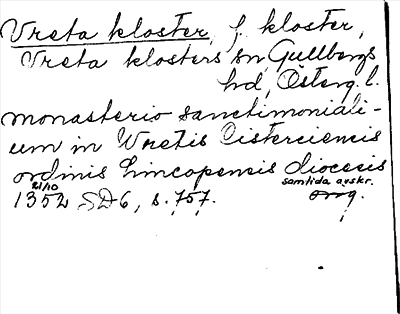 Vreta kloster, f. kloster,
Vreta klosters sn, Gullbergs
hd, Österg. l.
monasterio sanctimoniali-
um in Wretis Cisterciensis
ordinis Lincopensis diocesis
21/10 samtida avskr.
1352 SD6, s. 757. orig.